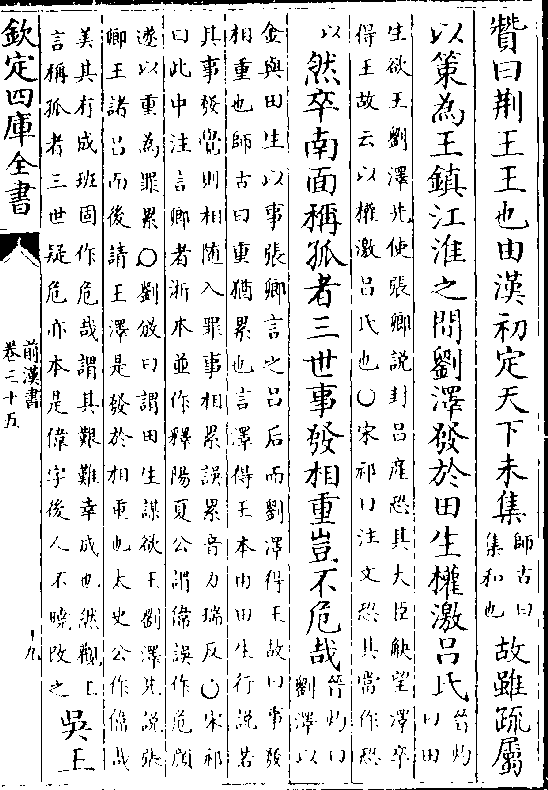 贊曰荆王王也由漢初定天下未集師古曰集和也故雖疏屬
以策為王鎮江淮之間劉澤發於田生權激吕氏晋灼曰田
生欲王劉澤先使張卿說封吕産恐其大臣觖望澤卒
得王故云以權激吕氏也○宋祁曰注文恐其當作恐
以然卒南面稱孤者三世事發相重豈不危哉晋灼曰劉澤以
金與田生以事張卿言之吕后而劉澤得王故曰事發
相重也師古曰重猶累也言澤得王本由田生行說若
其事發覺則相隨入罪事相累誤累音力瑞反○宋祁
曰此中注言卿者浙本並作釋陽夏公謂偉誤作危顔
遂以重為罪累○劉攽曰謂田生謀欲王劉澤先說張
卿王諸吕而後請王澤是發於相重也太史公作偉哉
美其有成班固作危哉謂其艱難幸成也然觀上
言稱孤者三世疑危亦本是偉字後人不曉改之吳王
欽定四庫全書
前漢書
卷三十五
十九